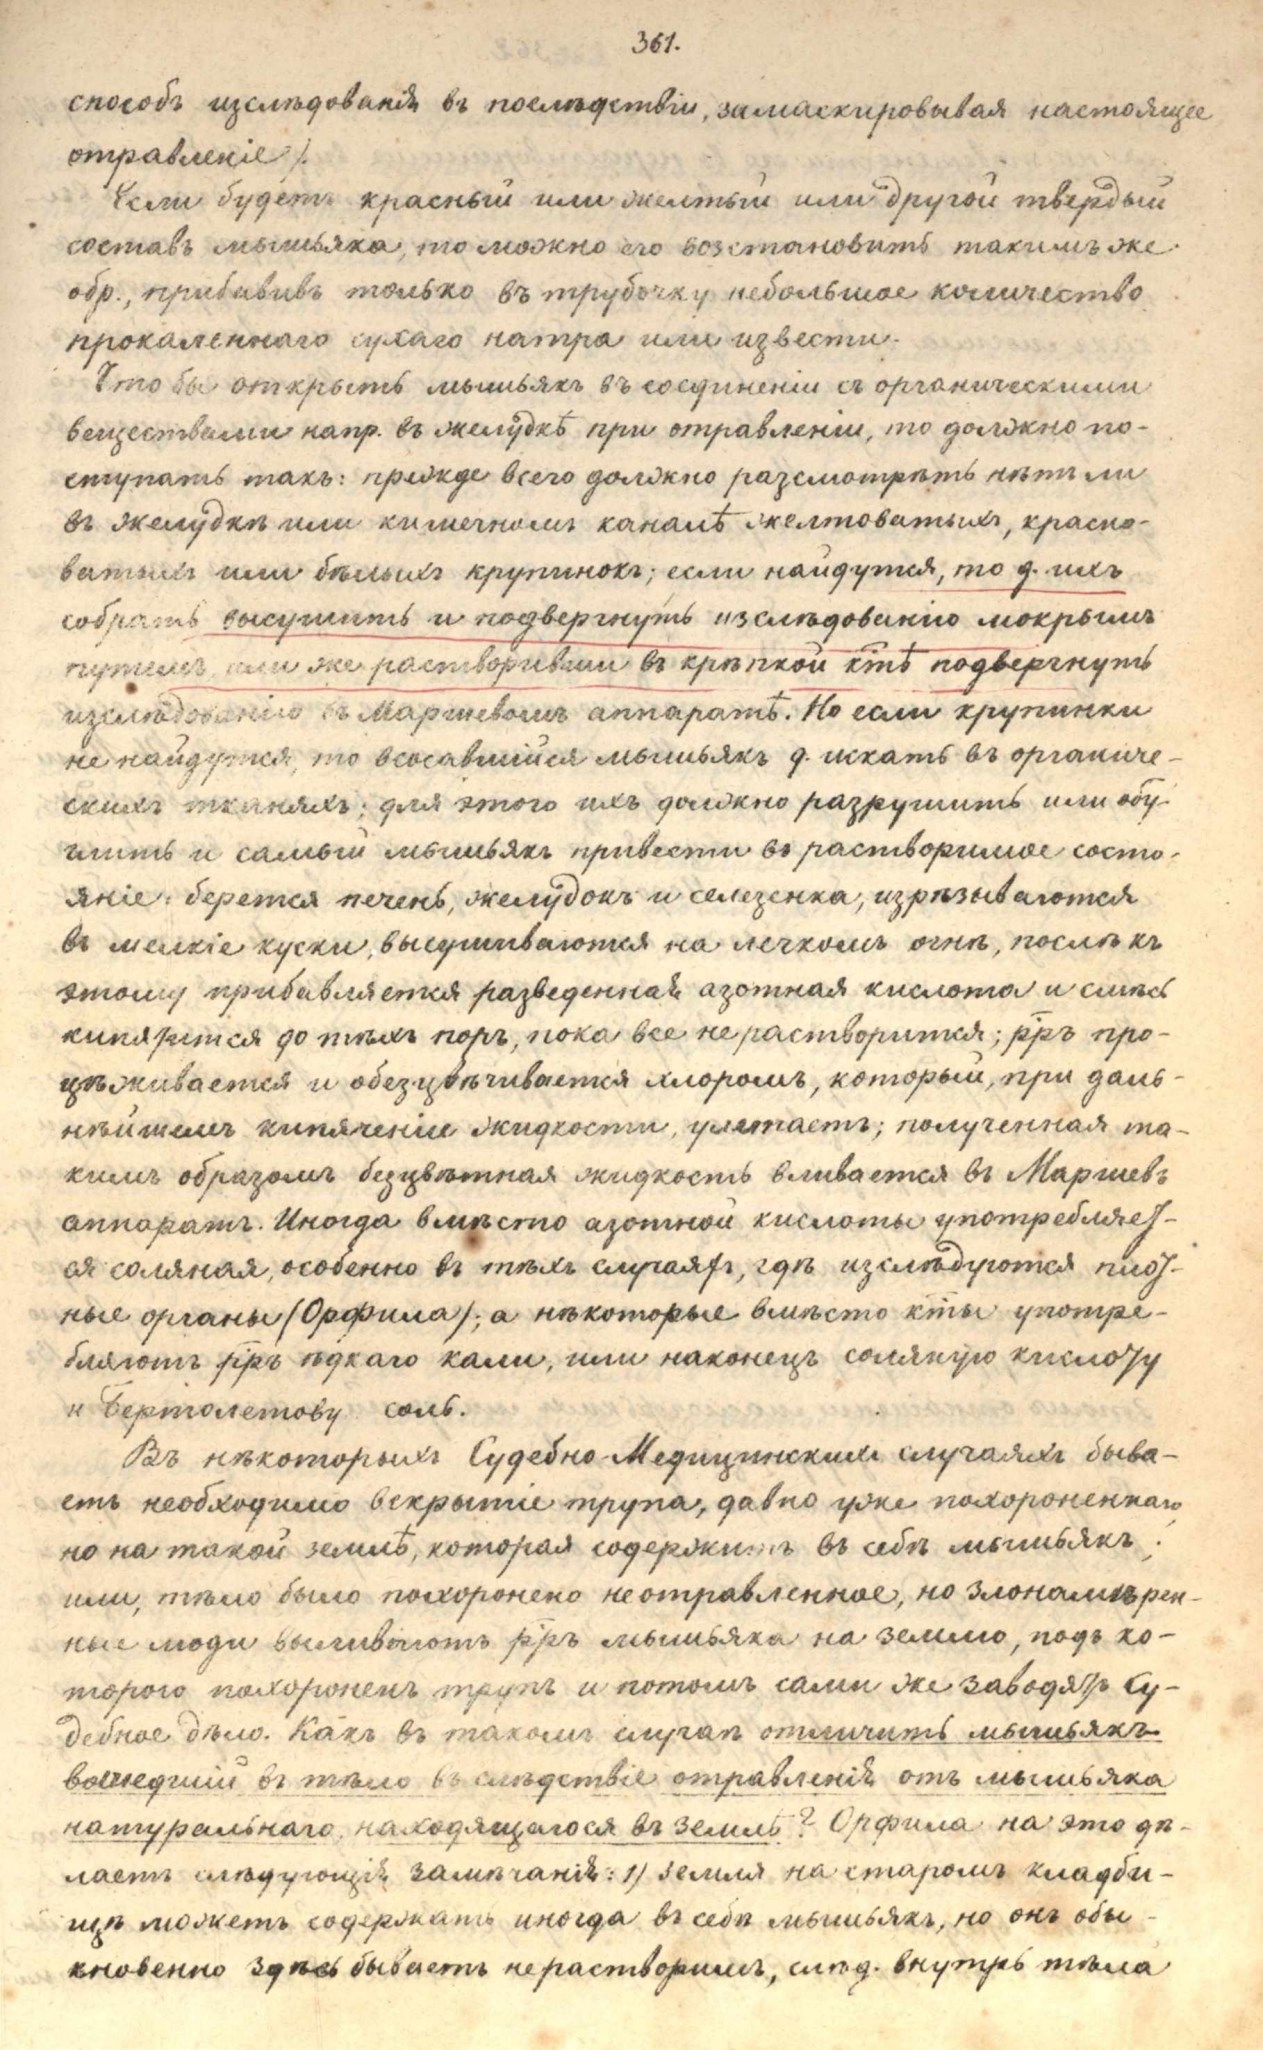 361.
способъ изслѣдованія въ послѣдствіи, замаскировывая настоящее
отравленіе).
Если будетъ красный или желтый или другой твердый
составъ мышьяка, то можно его возстановить такимъ же
обр., прибавивъ только въ трубочку небольшое количество
прокаленнаго сухаго натра или извести.
Что бы открыть мышьякъ въ соединеніи съ органическими
веществами напр. въ желудкѣ при отравленіи, то должно по-
ступать такъ: прежде всего должно разсмотрѣть нѣтъ ли
въ желудкѣ или кишечномъ каналѣ желтоватыхъ, красно-
ватыхъ или бѣлыхъ крупинокъ; если найдутся, то д. ихъ
собрать высушить и подвергнуть изслѣдованію мокрымъ
путемъ или же растворивши въ крѣпкой ктѣ подвергнуть
изслѣдованію въ Маршевомъ аппаратѣ. Но если крупинки
не найдутся, то всосавшійся мышьякъ д. искать въ органиче-
скихъ тканяхъ; для этого ихъ должно разрушить или обу-
глить и самый мышьякъ привести въ растворимое состо-
яніе: берется печень, желудокъ и селезенка, изрѣзываются
въ мелкіе куски, высушиваются на легкомъ огнѣ, послѣ къ
этому прибавляется разведенная азотная кислота и смѣсь
кипятится до тѣхъ поръ, пока все не растворится; рръ про-
цѣживается и обезцвѣчивается хлоромъ, который, при даль-
нѣйшемъ кипяченіи жидкости, улетаетъ; полученная та-
кимъ образомъ безцвѣтная жидкость вливается въ Маршевъ
аппаратъ. Иногда вмѣсто азотной кислоты употребляет-
ся соляная, особенно въ тѣхъ случаяхъ, гдѣ изслѣдуются плот-
ные органы (Орфила); а нѣкоторые вмѣсто кты употре-
бляютъ рръ ѣдкаго кали, или наконецъ соляную кислоту
и Бертолетову соль.
Въ нѣкоторыхъ Судебно-Медицинскихъ случаяхъ быва-
етъ необходимо вскрытіе трупа, давно уже похороненнаго
но на такой землѣ, которая содержитъ въ себѣ мышьякъ;
или, тѣло было похоронено неотравленное, но злонамѣрен-
ные люди выливаютъ рръ мышьяка на землю, подъ ко-
торою похороненъ трупъ и потомъ сами же заводятъ Су-
дебное дѣло. Какъ въ такомъ случаѣ отличить мышьякъ
вошедшій въ тѣло въ слѣдствіе отравленія отъ мышьяка
натуральнаго, находящагося въ землѣ? Орфила на это дѣ-
лаетъ слѣдующія замѣчанія: 1) Земля на старомъ кладби-
щѣ можетъ содержать иногда въ себѣ мышьякъ, но онъ обы-
кновенно здѣсь бываетъ нерастворимъ, слѣд. внутрь тѣла